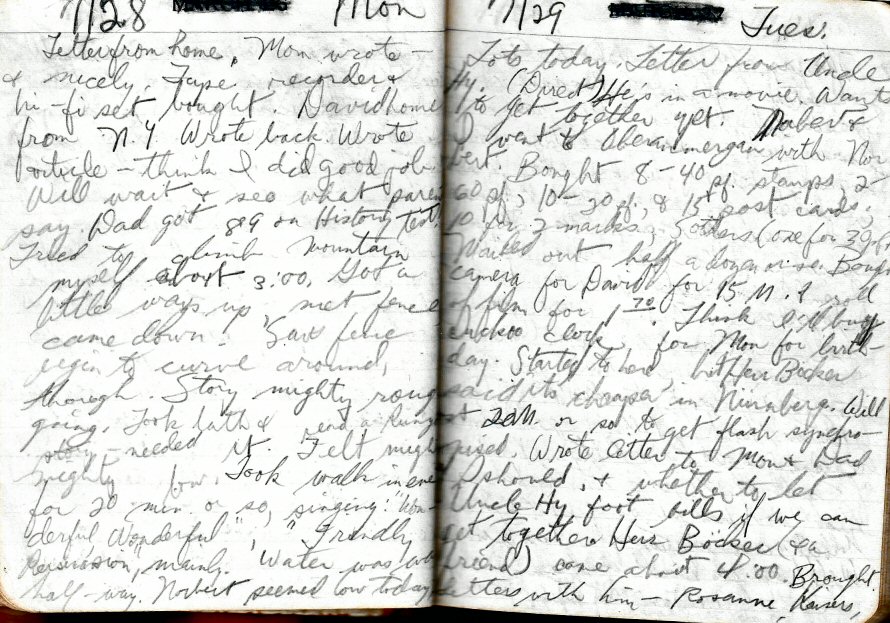 7/28 Mon
Letter from home, Mom wrote –
& nicely. Tape recorder &
hi-fi set bought. David home
from N.Y. Wrote back. Wrote
article – think I did good job.
Will wait & see what paren
say. Dad got 89 on History test!
Tried to climb mountain
myself about 3:00, Got a
little ways up, met fence
came down. Saw fence
begin to curve around,
though. Story mighty rough
going. Took bath & read a Runyon
story – needed it. Felt might
mighty low. Took walk in eve
for 20 min. or so, singing "Won-
derful Wonderful", "Friendly
Persuasion", mainly. Water was
half-way. Norbert seemed low today
7/29 Tues.
Lots today. Letter from Uncle
Hy. (Direct) He's in a movie. Want
to get together ypt.
I went to Oberammergau with Nor
bert. Bought 8–40 pf. stamps, 2–
60 pf., 10–20 pf., 8 15 pf post cards,
10 for 2 marks, 5 others (one for 30 pf
Waited out half a dozen or so. Bough
camera for David for 15 M. 1 roll
of film for 1.70. Think I'll buy
cuckoo clock for Mom for birth-
day. Started to here, but Herr Böcker
said it's cheaper in Nürnberg. Will
cost 20 M. or so to get flash synchro-
nised. Wrote letter to Mom & Dad
I should, & whether to let
Uncle Hy foot bills if we can
get together. Herr Böcker (& a
friend) came about 4:00. Brought
letters with him – Rosanne, Kaisers,